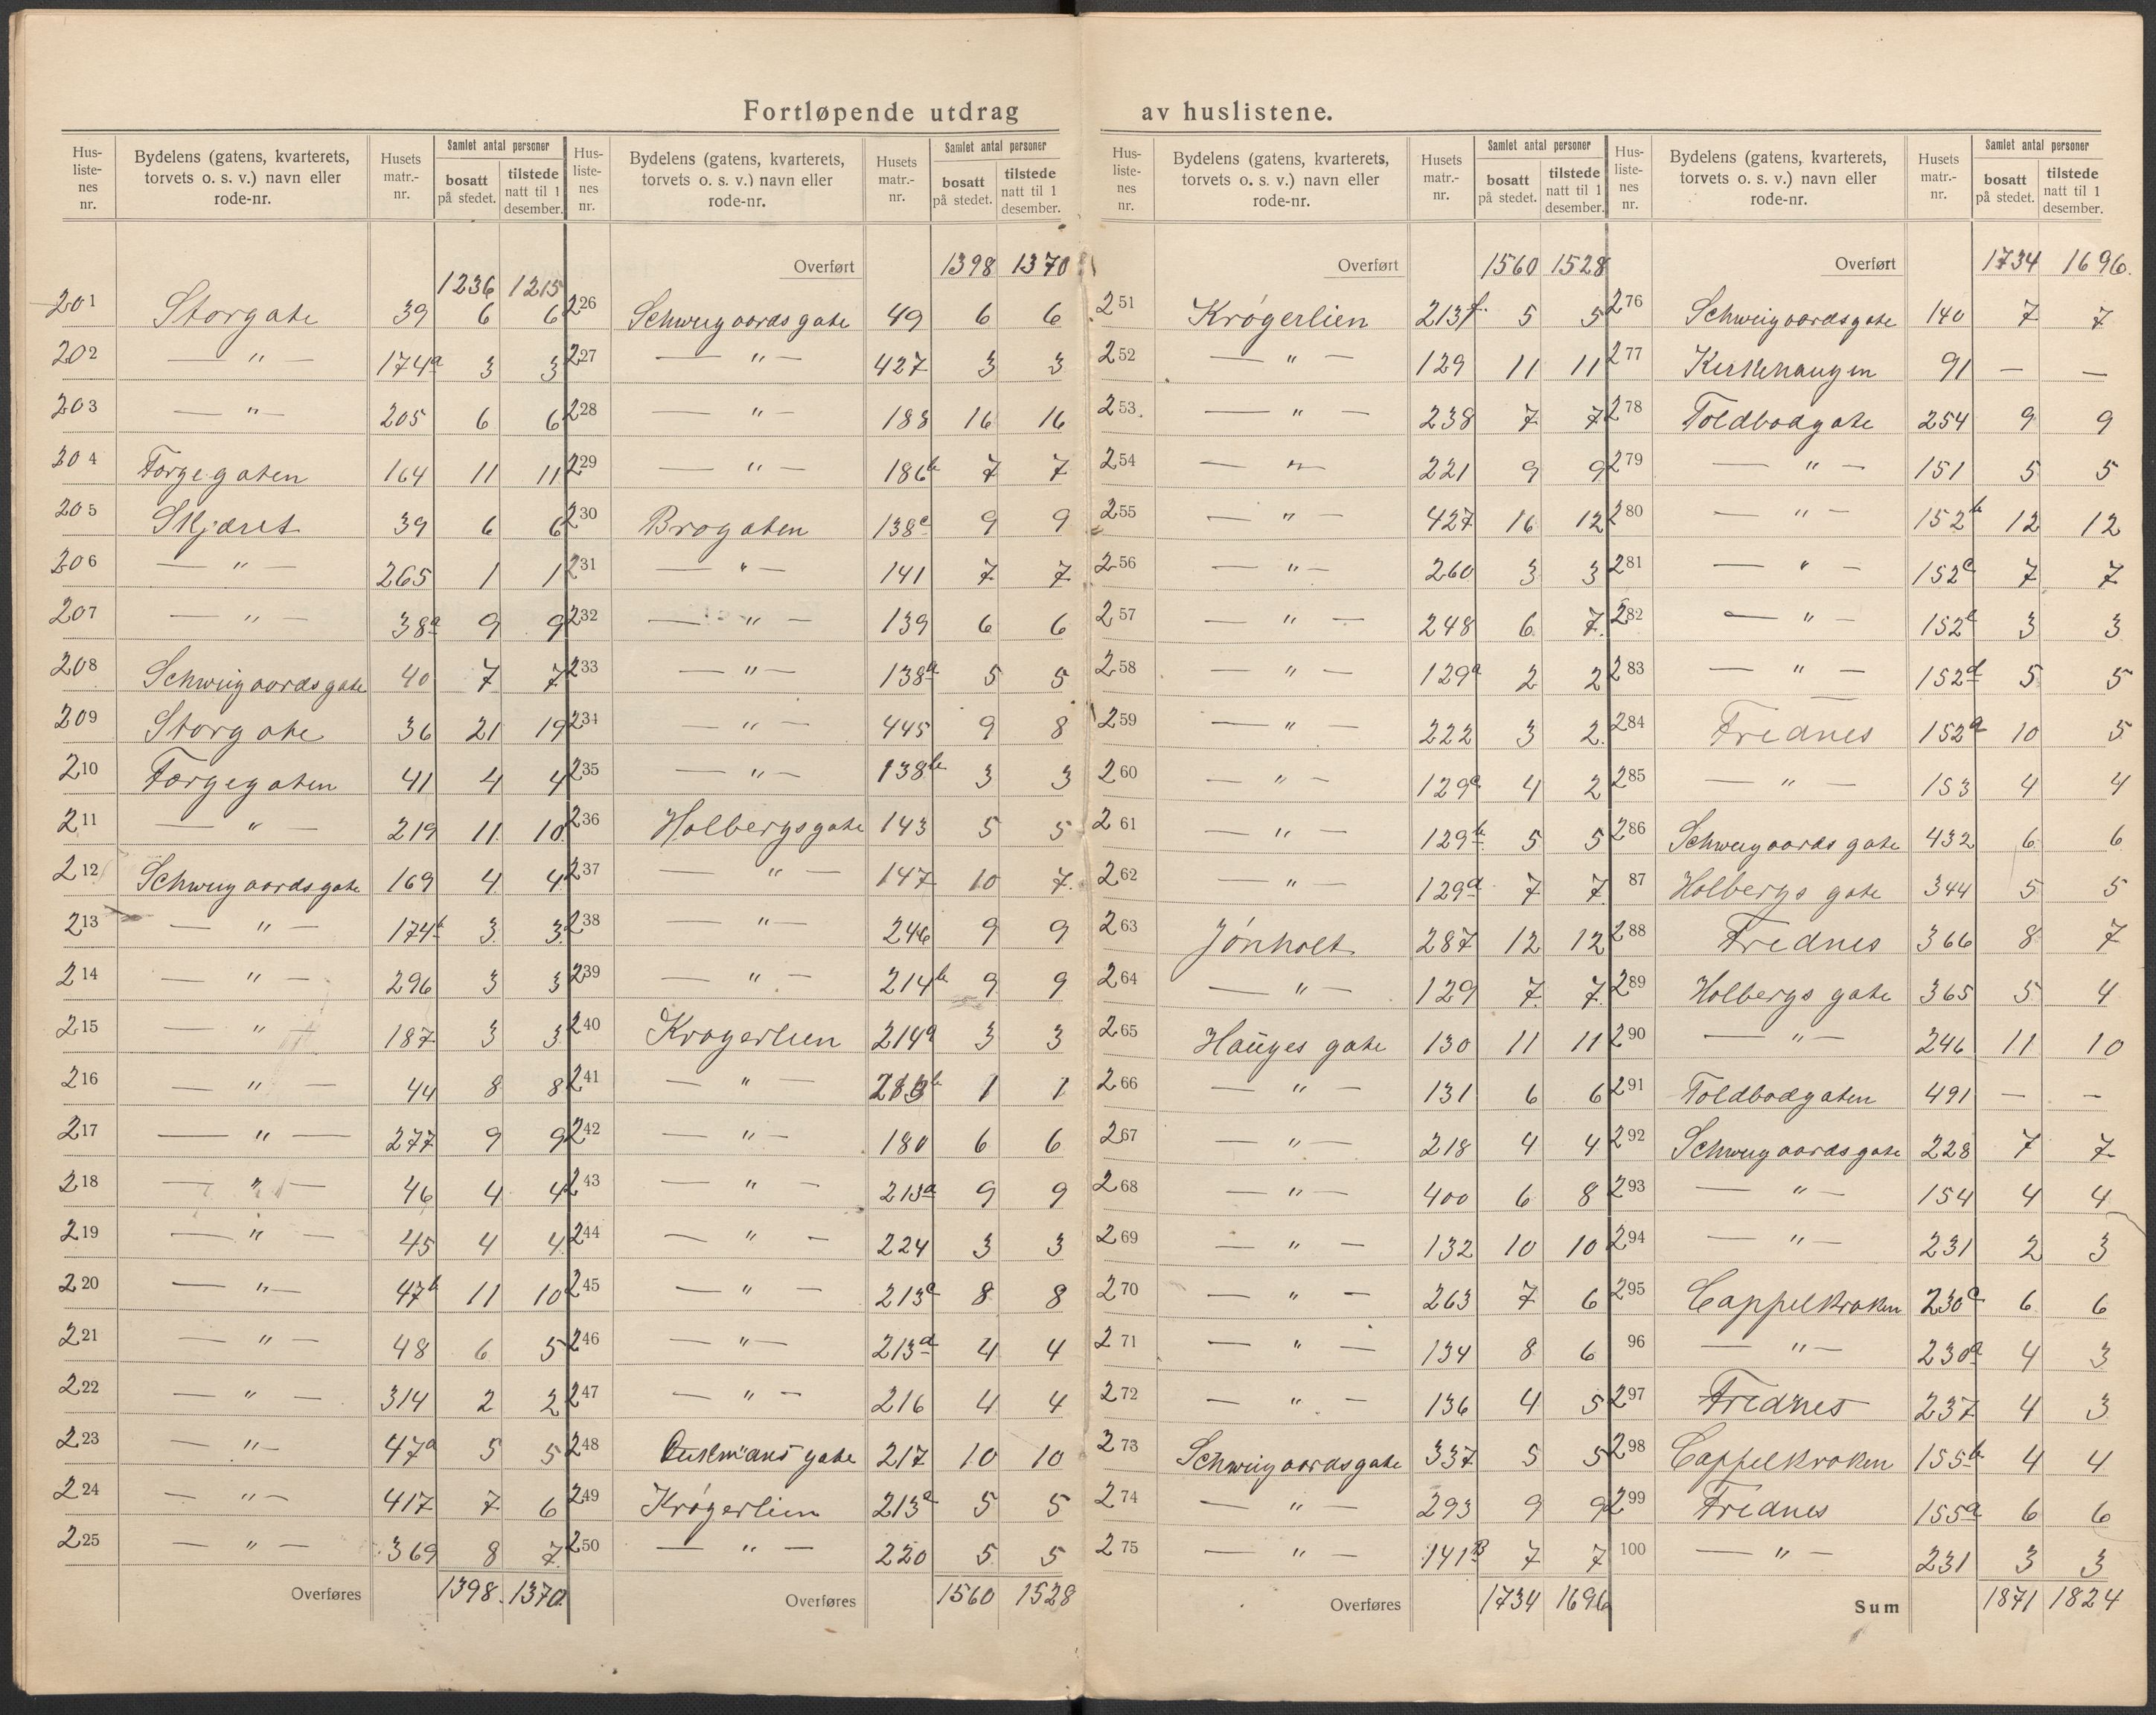 Fortløpende utdrag av huslistene.
Hus-liste-nes nr. | Bydelens (gatens, kvarterets, torvets o. s. v.) navn eller rode-nr. | Husets matr.-nr. | Samlet antal personer bosatt på stedet. | tilstede natt til 1 desember.
1236 1215
201 Storgate 39 6 6
202 — " — 174a 3 3
203 — " — 205 6 6
204 Færgegaten 164 11 11
205 Skjæret 39 6 6
206 — " — 265 1 1
207 — " — 38a 9 9
208 Schweigaardsgate 40 7 7
209 Storgate 36 21 19
210 Færgegaten 41 4 4
211 — " — 219 11 10
212 Schweigaardsgate 169 4 4
213 — " — 174b 3 3
214 — " — 296 3 3
215 — " — 187 3 3
216 — " — 44 8 8
217 — " — 277 9 9
218 — " — 46 4 4
219 — " — 45 4 4
220 — " — 47b 11 10
221 — " — 48 6 5
222 — " — 314 2 2
223 — " — 47a 5 5
224 — " — 417 7 6
225 — " — 369 8 7
Overføres 1398 1370
Hus-liste-nes nr. | Bydelens (gatens, kvarterets, torvets o. s. v.) navn eller rode-nr. | Husets matr.-nr. | Samlet antal personer bosatt på stedet. | tilstede natt til 1 desember.
Overført 1398 1370
226 Schweigaardsgate 49 6 6
227 — " — 427 3 3
228 — " — 183 16 16
229 — " — 186b 7 7
230 Brogaten 138c 9 9
231 — " — 141 7 7
232 — " — 139 6 6
233 — " — 138a 5 5
234 — " — 445 9 8
235 — " — 138b 3 3
236 Holbergsgate 143 5 5
237 — " — 147 10 7
238 — " — 246 9 9
239 — " — 214b 9 9
240 Krøgerlien 214a 3 3
241 — " — 1 1
242 — " — 180 6 6
243 — " — 213a 9 9
244 — " — 224 3 3
245 — " — 213c 8 8
246 — " — 213d 4 4
247 — " — 216 4 4
248 gate 217 10 10
249 Krøgerlien 213e 5 5
250 — " — 220 5 5
Overføres 1560 1528
Hus-liste-nes nr. | Bydelens (gatens, kvarterets, torvets o. s. v.) navn eller rode-nr. | Husets matr.-nr. | Samlet antal personer bosatt på stedet. | tilstede natt til 1 desember.
Overført 1560 1528
251 Krøgerlien 213f. 5 5
252 — " — 129 11 11
253. — " — 238 7 7
254 — " — 221 9 9
255 — " — 427 16 12
256 — " — 260 3 3
257 — " — 248 6 7
258 — " — 129a 2 2
259 — " — 222 3 2
260 — " — 129c 4 2
261 — " — 129b 5 5
262 — " — 129d 7 7
263 Jønholt 287 12 12
264 — " — 129 7 7
265 Hauges gate 130 11 11
266 — " — 131 6 6
267 — " — 218 4 4
268 — " — 400 6 8
269 — " — 132 10 10
270 — " — 263 7 6
271 — " — 134 8 6
272 — " — 136 4 5
273 Schweigaardsgate 337 5 5
274 — " — 293 9 9
275 — " — 141B 7 7
Overføres 1734 1696
Hus-liste-nes nr. | Bydelens (gatens, kvarterets, torvets o. s. v.) navn eller rode-nr. | Husets matr.-nr. | Samlet antal personer bosatt på stedet. | tilstede natt til 1 desember.
Overført 1734 1696.
276 Schweigaardsgate 140 7 7
277 Kirkehaugen 91 — —
278 Toldbodgate 254 9 9
279 — " — 151 5 5
280 — " — 152b 12 12
281 — " — 152c 7 7
282 — " — 152e 3 3
283 — " — 152d 5 5
284 Frednes 152a 10 5
285 — " — 153 4 4
286 Schweigaards gate 432 6 6
87 Holbergs gate 344 5 5
288 Frednes 366 8 7
289 Holbergs gate 365 5 4
290 — " — 246 11 10
291 Toldbodgaten 491 — —
292 Schweigaardsgate 228 7 7
293 — " — 154 4 4
294 — " — 231 2 3
295 Cappelkroken 230c 6 6
96 — " — 230a 4 3
297 Frednes 237 4 3
298 Cappelkroken 155b 4 4
299 Frednes 155a 6 6
100 — " — 231 3 3
Sum 1871 1824